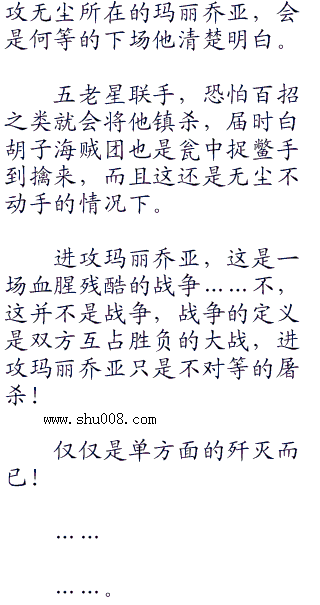 攻无尘所在的玛丽乔亚，会
是何等的下场他清楚明白。
五老星联手，恐怕百招
之类就会将他镇杀，届时白
胡子海贼团也是瓮中捉鳖手
到擒来，而且这还是无尘不
动手的情况下。
进攻玛丽乔亚，这是一
场血腥残酷的战争……不，
这并不是战争，战争的定义
是双方互占胜负的大战，进
攻玛丽乔亚只是不对等的屠
杀！
www.shu008.com
仅仅是单方面的歼灭而
已！
……
……。